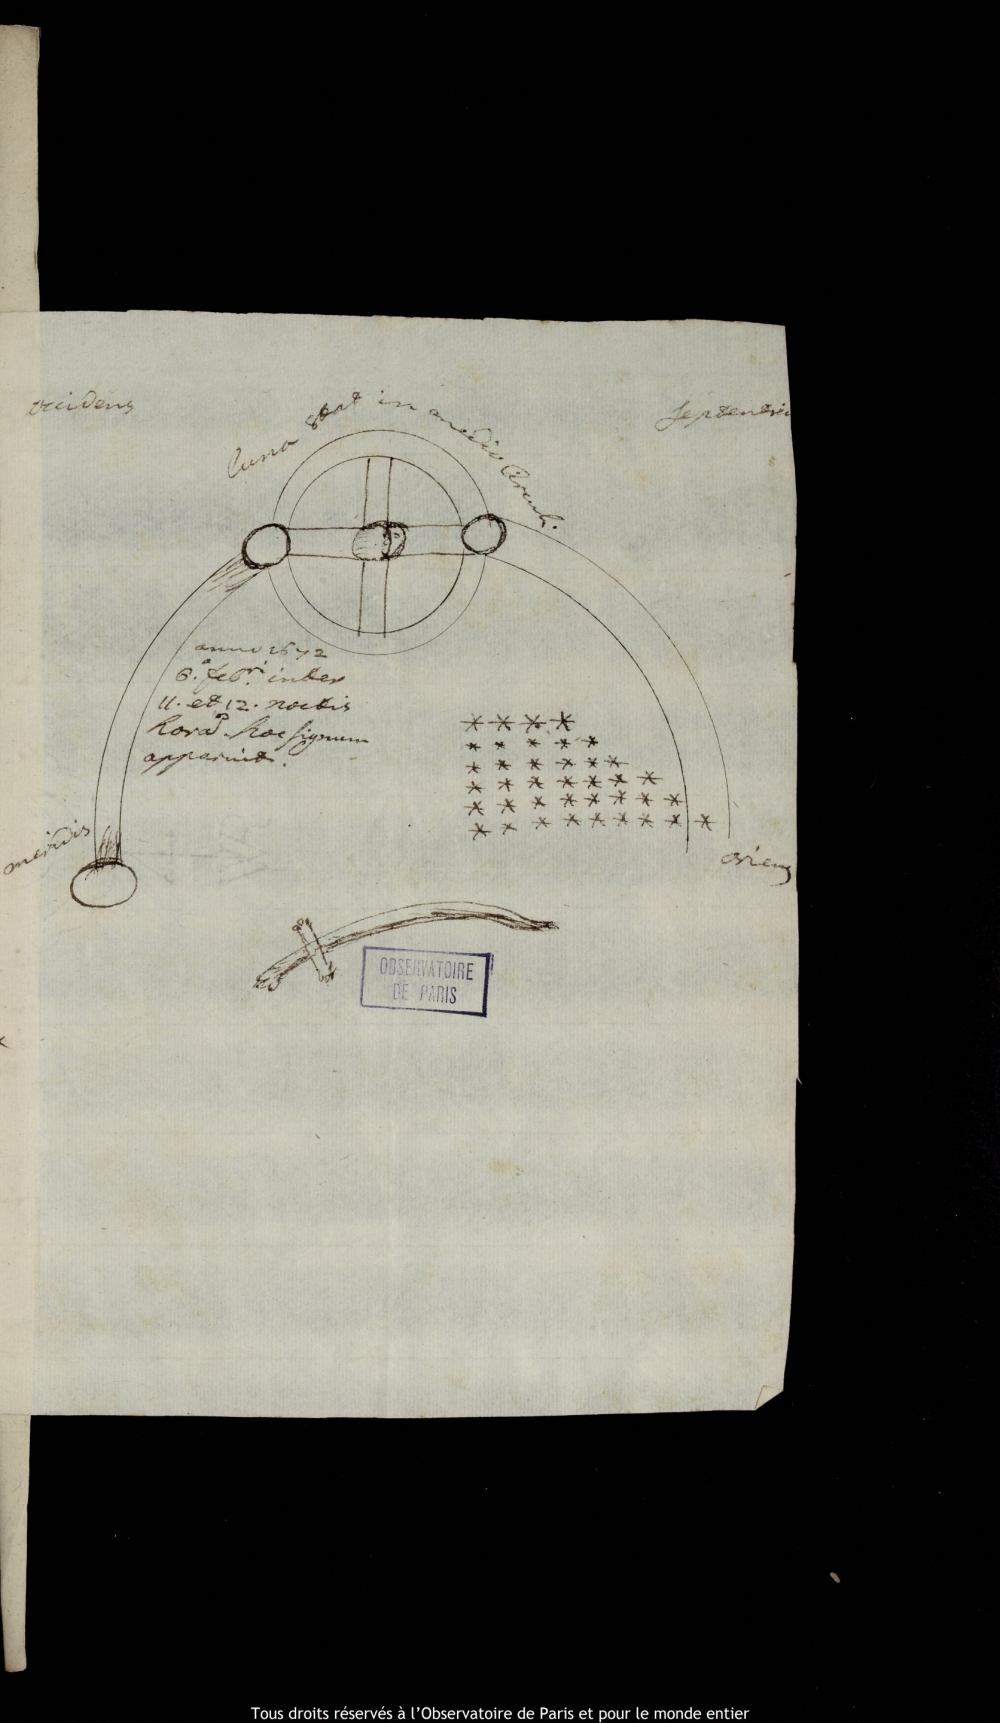 occidens
Septentrio
luna stat in medio Circuli.
anno 1672
6.ª febri inter
11. et 12. noctis
horâ hoc signum
apparuit.
meridis
oriens
OBSERVATOIRE
DE PARIS
Tous droits réservés à l'Observatoire de Paris et pour le monde entier